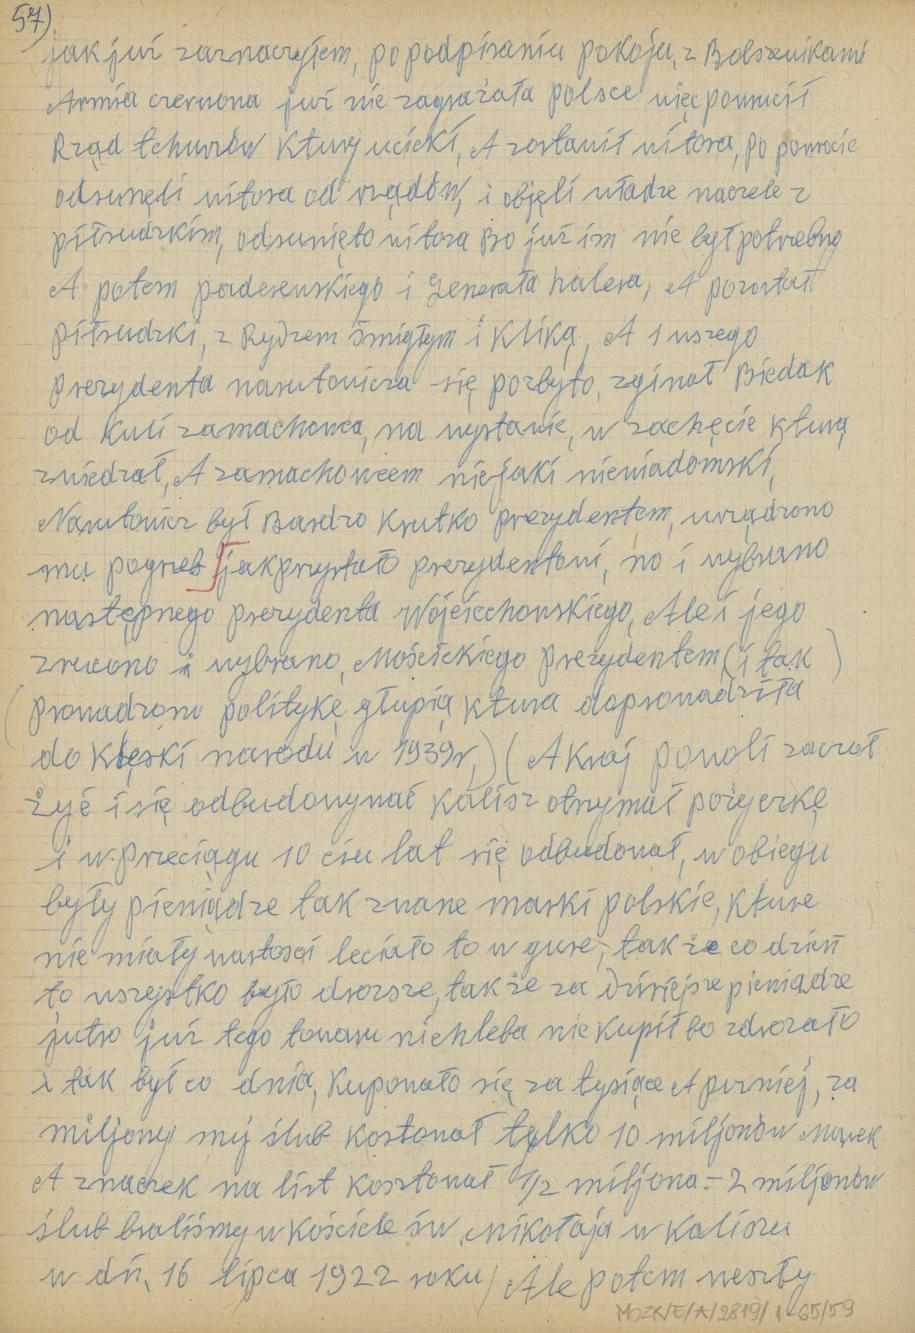 57)
jak już zaznaczyłem, po podpisaniu pokoju, z Bolszewikami
Armia czerwona już nie zagrażała polsce więc powrucił
Rząd tchurzów ktury uciekł, A zostawił witosa, po powrocie
odsunęli witosa od rządów, i objęli władze naczele z
piłsudzkim, odsunięto witosa Bo już im nie był potrzebny
A potem paderewskiego i Generała halera, A pozostał
piłsudzki, z Rydzem śmigłym i kliką, A 1 wszego
prezydenta narutowicza się pozbyto, zginoł Biedak
od kuli zamachowca, na wystawie, w zachęcie kturą
zwiedzał, A zamachowcem niejaki niewiadomski,
Narutowicz był Bardzo krutko prezydentem, urządzono
mu pogrzeb jakprzystało prezydentowi, no i wybrano
następnego prezydenta Wojciechowskiego, Ale i jego
zrzucono i wybrano, Mościckiego prezydentem (i tak )
( prowadzono politykę głupią ktura doprowadziła
do klęski narodu w 1939r,) ( A kraj powoli zaczoł
żyć i się odbudowywał kalisz otrzymał pożyczkę
i w przeciągu 10 ciu lat się odbudował, w obiegu
były pieniądze tak zwane marki polskie, kture
nie miały wartosci leciało to w gure, tak że co dzień
to wszystko było drozsze, tak że za dzisiejsze pieniądze
jutro już tego towaru nichleba nie kupił bo zdrozało
i tak był co dnia, kupowało się za tysiące A puzniej, za
miljony mój ślub kosztował tylko 10 miljonów Marek
A znaczek na list kosztował 1/2 miljona - 2 miljonów
ślub braliśmy w kościele św, Mikołaja w kaliszu
w dń, 16 lipca 1922 roku / Ale potem weszły
MOZK/E/A/2819/1-65/59